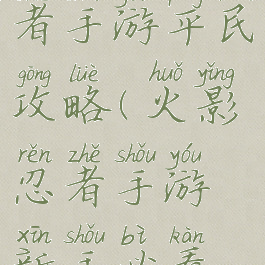 者手游平民
gōng lüè huǒ yǐng
攻略(火影
rěn zhě shǒu yóu
忍者手游
xīn shǒu bì kàn